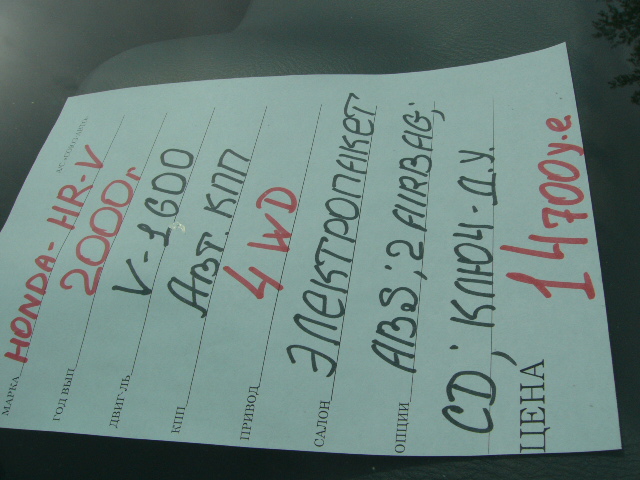 МАРКА HONDA-HR-V
ГОД ВЫП. 2000г
ДВИГ-ЛЬ V-1600
КПП Авт. КПП
ПРИВОД 4WD
САЛОН ЭЛЕКТРОПАКЕТ
ОПЦИИ ABS; 2 AIRBAG;
CD; КЛЮЧ-Д.У.
ЦЕНА 14700у.е